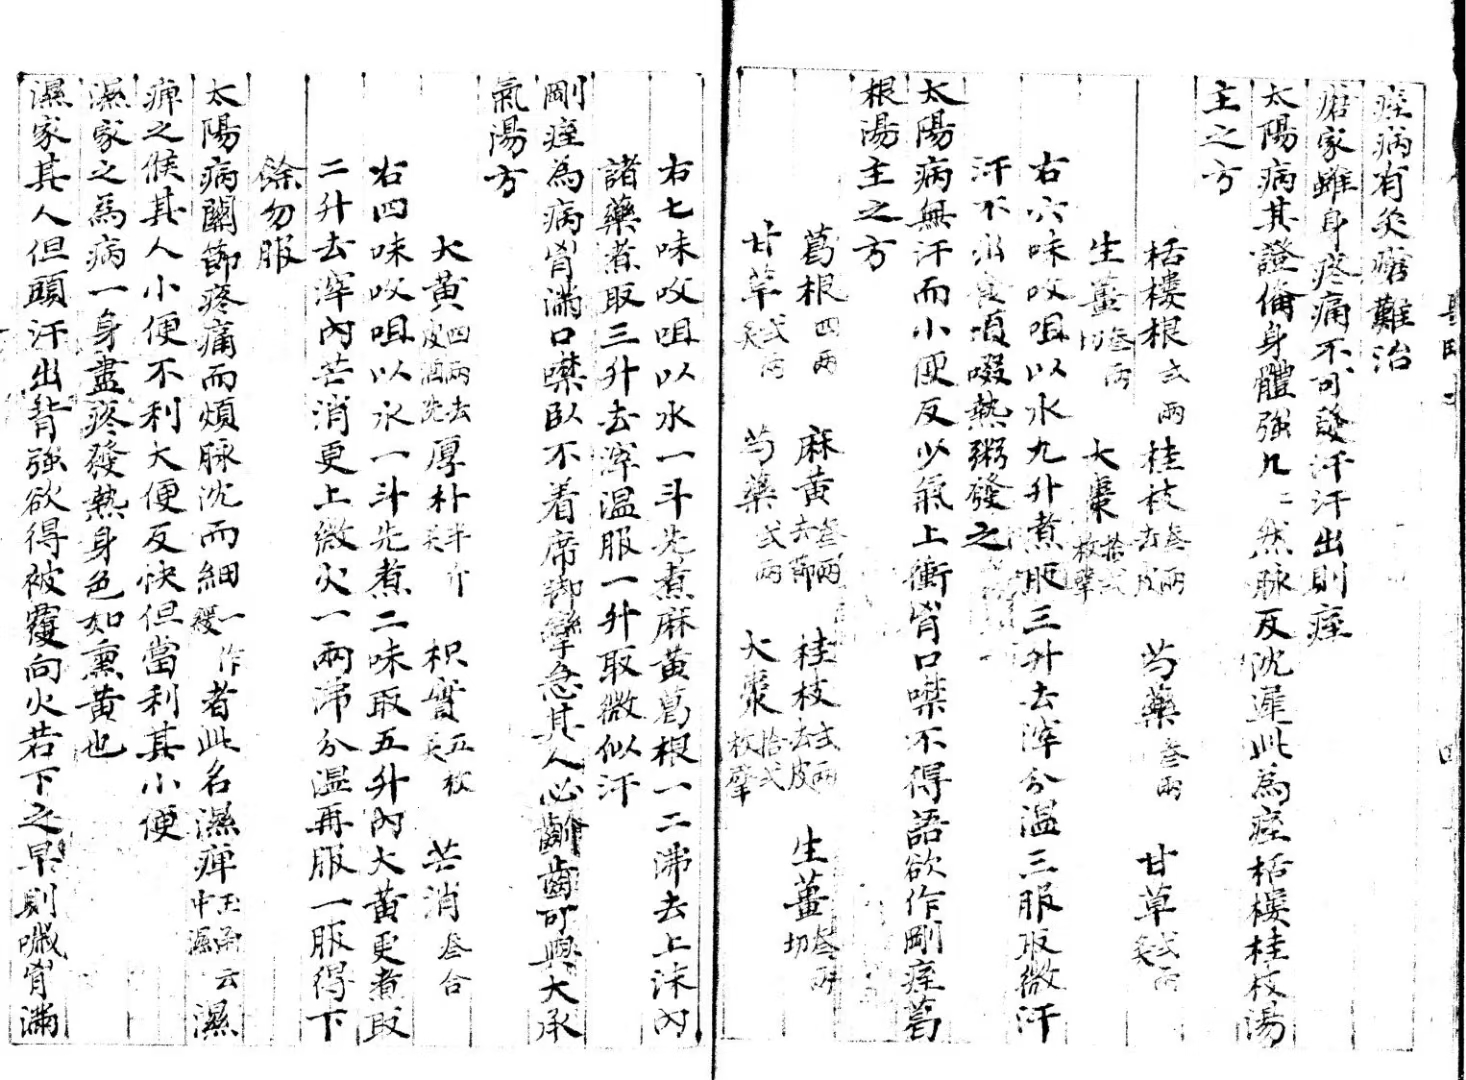 痓病有灸瘡難治
瘡家雖身疼痛不可發汗汗出則痓
太陽病其證俻身體強几〻然脉反沈遲此為痓栝樓桂枝湯
主之方
栝樓根弍兩 桂枝叁兩去皮 芍藥叁兩 甘草弍兩炙
生薑叁兩切 大棗拾弍枚擘
右六味㕮咀以水九升煮取三升去滓分温三服取微汗
汗不出食頃啜熱粥發之
太陽病無汗而小便反少氣上衝胷口噤不得語欲作剛痓葛
根湯主之方
葛根四兩 麻黄叁兩去節 桂枝弍兩去皮 生薑叁兩切
甘草弍兩炙 芍藥弍兩 大棗拾弍枚擘
右七味㕮咀以水一斗先煮麻黄葛根一二沸去上沫内
諸藥煮取三升去滓温服一升取微似汗
剛痓為病胷滿口噤臥不着席脚攣急其人必齘齒可與大承
氣湯方
大黄四兩去皮酒洗 厚朴半斤炙 枳實五枚炙 芒消叁合
右四味㕮咀以水一斗先煮二味取五升内大黄更煮取
二升去滓内芒消更上微火一兩沸分温再服一服得下
餘勿服
太陽病關節疼痛而煩脉沈而細一作緩者此名濕痺玉函云中濕濕
痺之候其人小便不利大便反快但當利其小便
濕家之為病一身盡疼發熱身色如熏黄也
濕家其人但頭汗出背強欲得被覆向火若下之早則噦胷滿